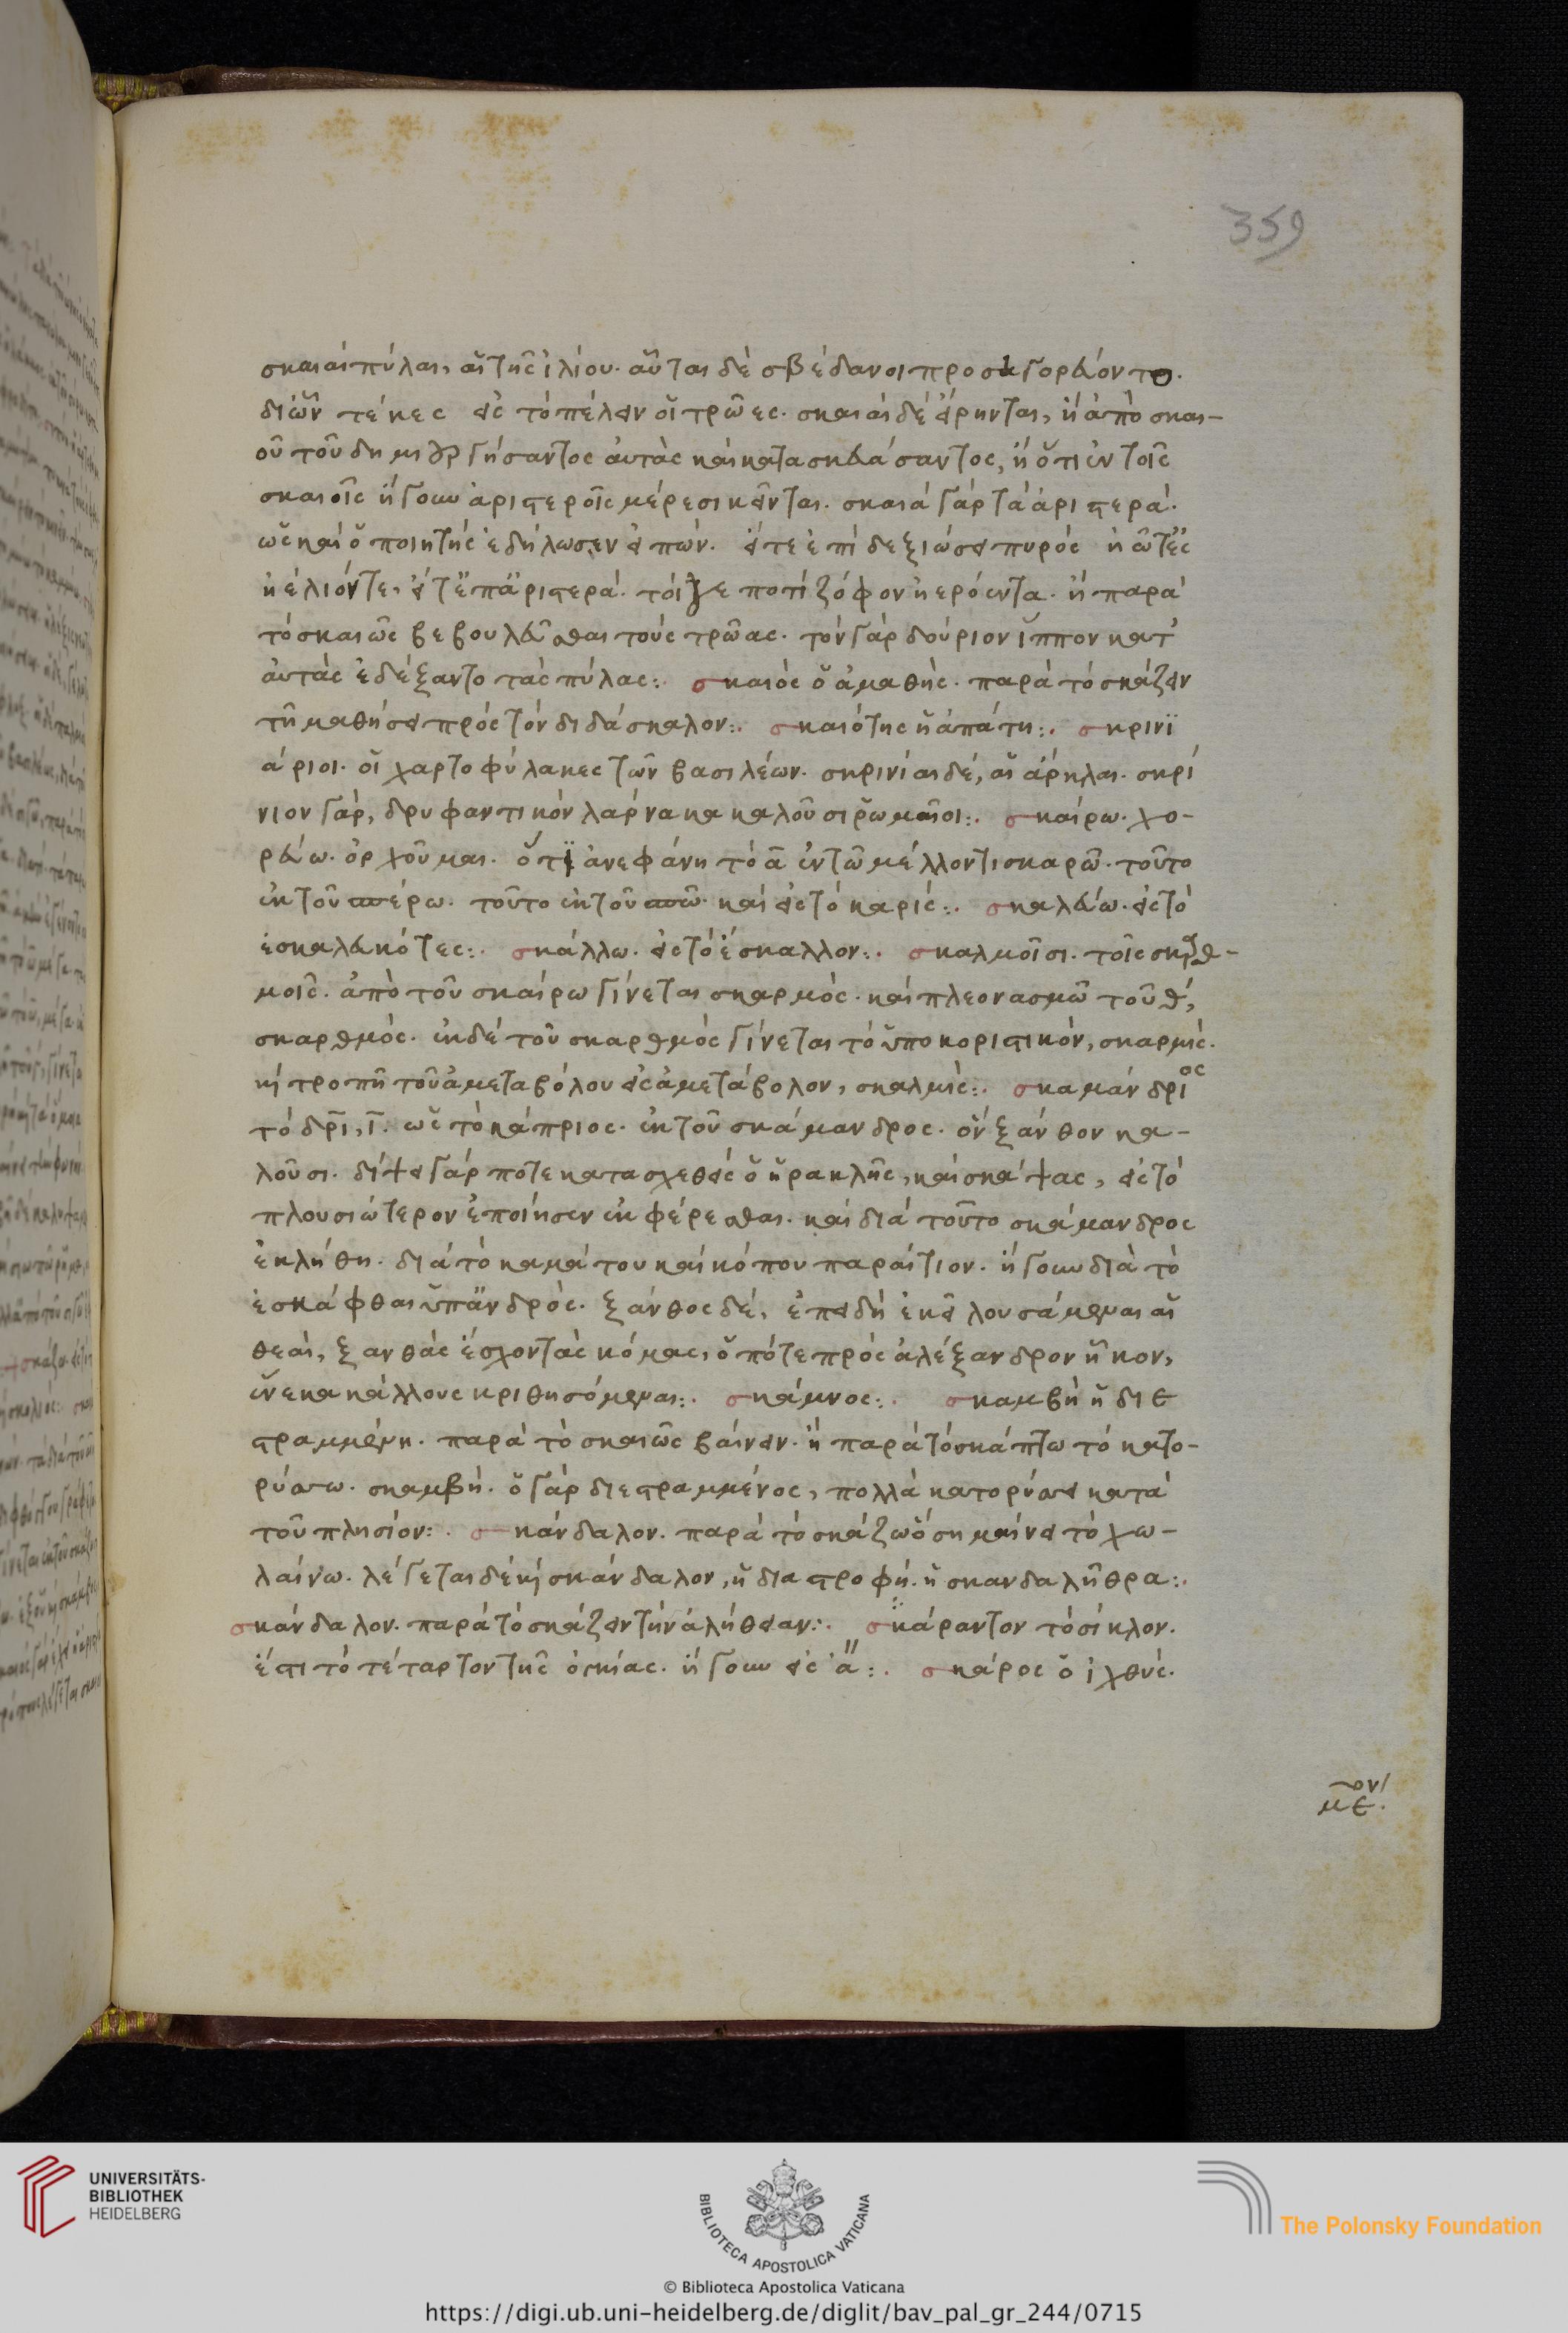 359
σκαιαὶ πύλαι, αἱ τῆς ἰλίου. αὗται δὲ σβέδανοι προσηγορεύοντο.
δι ὧν τέκες εἰς τὸ πέλειν οἱ τρῶες. σκαιαὶ δὲ εἴρηνται, ἢ ἀπὸ σκαι-
οῦ τοῦ δημιουργήσαντος αὐτὰς καὶ κατασκευάσαντος, ἢ ὅτι ἐν τοῖς
σκαιοῖς ἤγουν ἀριστεροῖς μέρεσι κεῖνται. σκαιὰ γὰρ τὰ ἀριστερά.
ὡς καὶ ὁ ποιητὴς ἐδήλωσεν εἰπών. εἴτε ἐπὶ δεξιὼσει πυρός ἠῶ τε
ἠέλιόν τε, εἴτ ἐπ ἀριστερά. τοίγε ποτὶ ζόφον ἠερόεντα. ἢ παρὰ
τὸ σκαιῶς βεβουλεῦσθαι τοὺς τρῶας. τὸν γὰρ δούριον ἵππον κατ
αὐτὰς ἐδέξαντο τὰς πύλας:. σκαιός ὁ ἀμαθής. παρὰ τὸ σκάζειν
τῇ μαθήσει πρὸς τὸν διδάσκαλον:. σκαιότης ἡ ἀπάτη:. σκρινϊ
άριοι. οἱ χαρτοφύλακες τῶν βασιλέων. σκρινίαι δέ, αἱ ἄρκλαι. σκρί
νιον γάρ, δρυφαντικὸν λάρνακα καλοῦσι ῥωμαῖοι:. σκαίρω. χο-
ρεύω. ὀρχοῦμαι. ὅτι ἀνεφάνη τὸ α ἐν τῷ μέλλοντι σκαρῶ. τοῦτο
ἐκ τοῦ σπέρω. τοῦτο ἐκ τοῦ σπῶ. καὶ εἰς τὸ καρίς:. σκαλεύω. εἰς τὸ
ἐσκαλευκότες:. σκάλλω. εἰς τὸ ἔσκαλλον:. σκαλμοῖσι. τοῖς σκαρθ-
μοῖς. ἀπὸ τοῦ σκαίρω γίνεται σκαρμός. καὶ πλεονασμῷ τοῦ θ,
σκαρθμός. ἐκ δὲ τοῦ σκαρθμός γίνεται τὸ ὑποκοριστικόν, σκαρμίς.
καὶ τροπῇ τοῦ ἀμεταβόλου εἰς ἀμετάβολον, σκαλμίς:. σκαμάνδριος
τὸ δρι, ι. ὡς τὸ κάπριος. ἐκ τοῦ σκάμανδρος. ὃν ξάνθον κα-
λοῦσι. δίψει γάρ ποτε κατασχεθείς ὁ ἡρακλῆς, καὶ σκάψας, εἰς τὸ
πλουσιώτερον ἐποίησεν ἐκφέρεσθαι. καὶ διὰ τοῦτο σκάμανδρος
ἐκλήθη. διὰ τὸ καμάτου καὶ κόπου παραίτιον. ἤγουν διὰ τὸ
ἐσκάφθαι ὑπ ἀνδρός. ξάνθος δέ, ἐπειδὴ ἐκεῖ λουσάμεναι αἱ
θεαί, ξανθὰς ἔσχον τὰς κόμας, ὁπότε πρὸς ἀλέξανδρον ἧκον,
ἕνεκα κάλλους κριθησόμεναι:. σκάμνος:. σκαμβὴ ἡ διε
στραμμένη. παρὰ τὸ σκαιῶς βαίνειν. ἢ παρὰ τὸ σκάπτω τὸ κατο-
ρύσσω. σκαμβή. ὁ γὰρ διεστραμμένος, πολλὰ κατορύσσει κατὰ
τοῦ πλησίον:. σκάνδαλον. παρὰ τὸ σκάζω ὃ σημαίνει τὸ χω-
λαίνω. λέγεται δὲ καὶ σκάνδαλον, ἡ διαστροφή. ἡ σκανδαλῆθρα:.
σκάνδαλον. παρὰ τὸ σκάζειν τὴν ἀλήθειαν:. σκάραντον τὸ σίκλον.
ἔστι τὸ τέταρτον τῆς ὀγκίας. ἤγουν εἰς α:. σκάρος ὁ ἰχθύς.
με^ον
UNIVERSITÄTS-
BIBLIOTHEK
HEIDELBERG
BIBLIOTECA APOSTOLICA VATICANA
© Biblioteca Apostolica Vaticana
The Polonsky Foundation
https://digi.ub.uni-heidelberg.de/diglit/bav_pal_gr_244/0715